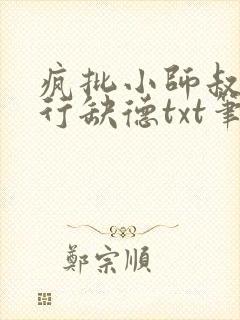 疯批小师叔
行缺德txt笔
鄭宗順